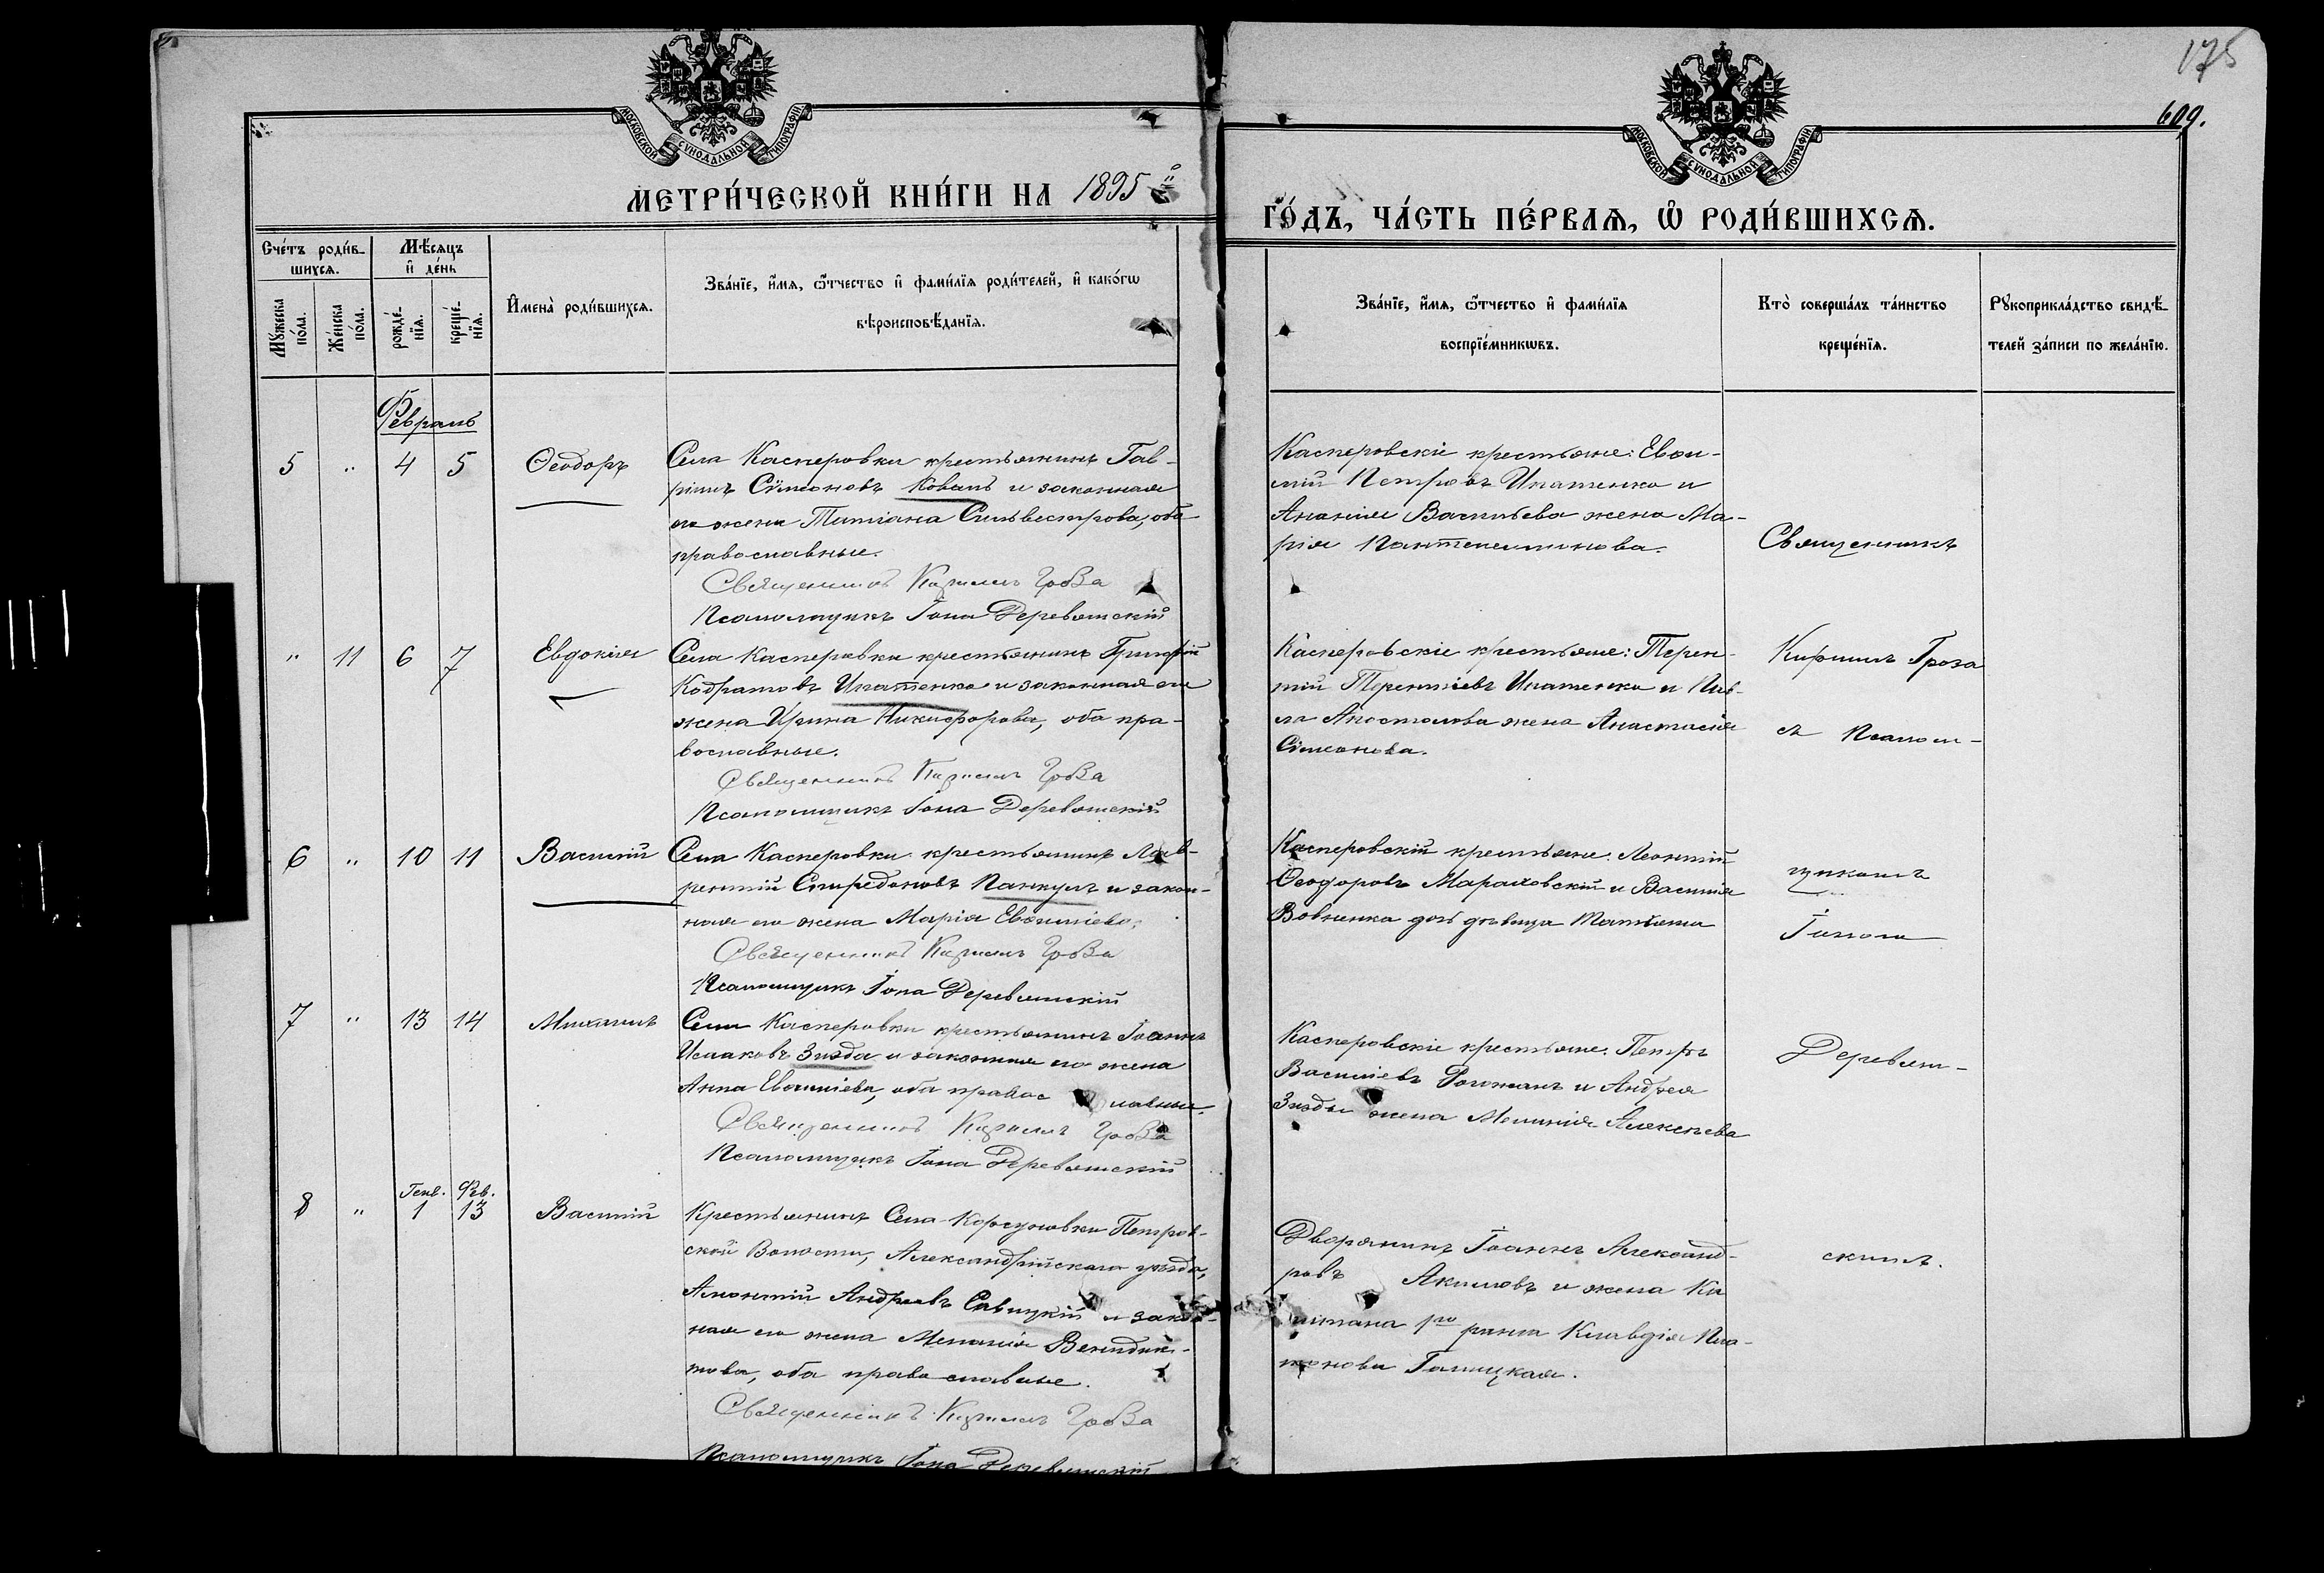 175
609.
МОСКОВСКОЙ СѴНОДАЛЬНОЙ ТИПОГРАФІИ
МОСКОВСКОЙ СѴНОДАЛЬНОЙ ТИПОГРАФІИ
МЕТРИ́ЧЕСКОЙ КНИ́ГИ НА 1895 й
ГО́ДЪ, ЧА́СТЬ ПЕ́РВАѦ, Ѡ҆ РОДИ́ВШИХСѦ.
Сче́тъ роди́в-
шихсѧ.
Мꙋ́жеска
по́ла.
Же́нска
по́ла.
Мѣ́сѧцъ
и҆ де́нь
рожде́-
нїѧ.
креще́-
нїѧ.
И҆мена̀ роди́вшихсѧ.
Зва́нїе, и҆́мѧ, ѻ҆́тчество и҆ фами́лїѧ роди́телей, и҆ како́гѡ
вѣроисповѣ́данїѧ.
Зва́нїе, и҆́мѧ, ѻ҆́тчество и҆ фами́лїѧ
воспрїе́мникѡвъ.
Кто̀ соверша́лъ та́инство
креще́нїѧ.
Рꙋкоприкла́дство свидѣ́-
телей за́писи по жела́нїю.
Февраль
5 " 4 5 Ѳеодоръ
Села Касперовки крестьянинъ Гав-
ріилъ Сѵмеоновъ Коваль и законная
его жена Татіана Сильвестрова, оба
православные.
Священникъ Кириллъ Гроза
Псаломщикъ Іона Деревянскій
Касперовскіе крестьяне: Евѳи-
мій Петровъ Ипатенко и
Ананіи Васильева жена Ма-
рія Пантелеимонова.
Священникъ
" 11 6 7 Евдокія
Села Касперовки крестьянинъ Григорій
Кодратовъ Ипатенко и законная его
жена Ирина Никифорова, оба пра-
вославные.
Священникъ Кириллъ Гроза
Псаломщикъ Іона Деревянскій
Касперовскіе крестьяне: Терен-
тій Терентіевъ Ипатенко и Пав-
ла Апостолова жена Анастасія
Сѵмеонова.
Кириллъ Гроза
съ Псалом-
6 " 10 11 Василій
Села Касперовки крестьянинъ Лав-
рентій Спиридоновъ Панкулъ и закон-
ная его жена Марія Евѳиміева,
Священникъ Кириллъ Гроза
Псаломщикъ Іона Деревянскій
Касперовскій крестьяне: Леонтій
Ѳеодоровъ Мараховскій и Василія
Вовненка дочь дѣвица Татіана
щикомъ
Іоною
7 " 13 14 Михаилъ
Села Касперовки крестьянинъ Іоаннъ
Исааковъ Знзда и законная его жена
Анна Евѳиміева, оба православные.
Священникъ Кириллъ Гроза
Псаломщикъ Іона Деревянскій
Касперовскіе крестьяне: Петръ
Василіевъ Рогожанъ и Андрея
жена Меланія Алексѣева
Деревян-
8 " Генв. 1 Фев. 13 Василій
Крестьянинъ Села Корсуновки Петров-
ской Волости, Александрійскаго уѣзда,
Андреевъ Савицкій и закон-
ная его жена Меланія Венедик-
това, оба православные.
Священникъ Кириллъ Гроза
Псаломщикъ Іона Деревянскій
Дворянинъ Іоаннъ Александ-
ровъ Акимовъ и жена Ка
питана 1го ранга Клавдія Пла-
тонова Галицкая.
скимъ.